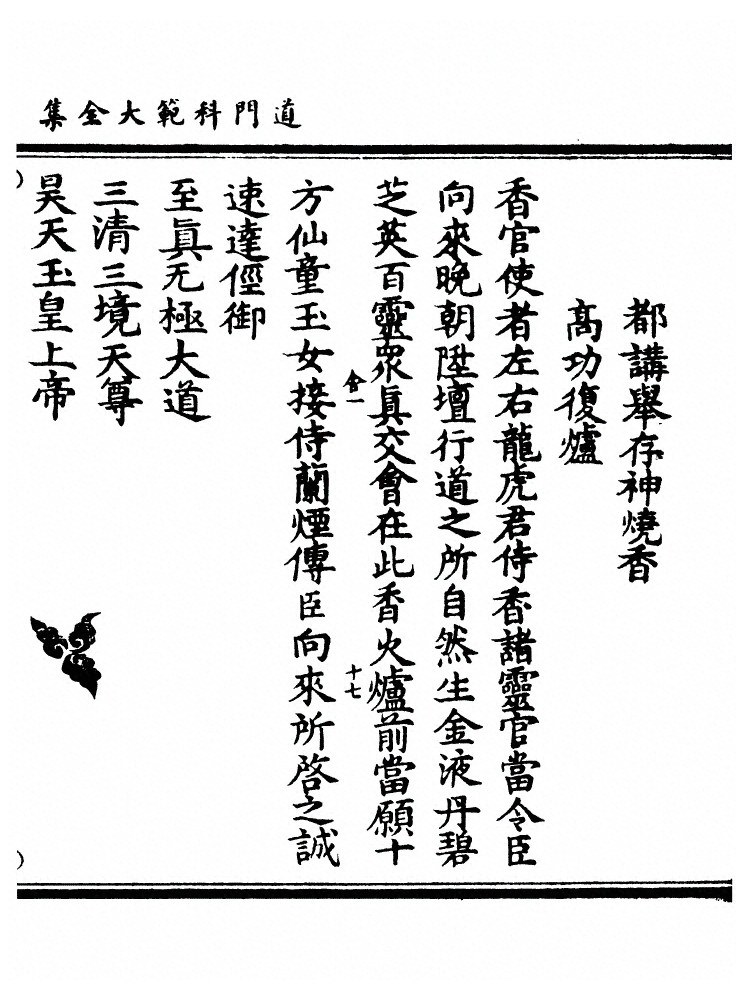 道門科範大全集
都講舉存神燒香
高功復爐
香官使者左右龍虎君侍香諸靈官當令臣
向來晚朝陞壇行道之所自然生金液丹碧
芝英百靈衆眞交會在此香火爐前當願十
會一
十七
方仙童玉女接侍蘭煙傳臣向來所啓之誠
速達徑御
至眞无極大道
三清三境天尊
昊天玉皇上帝